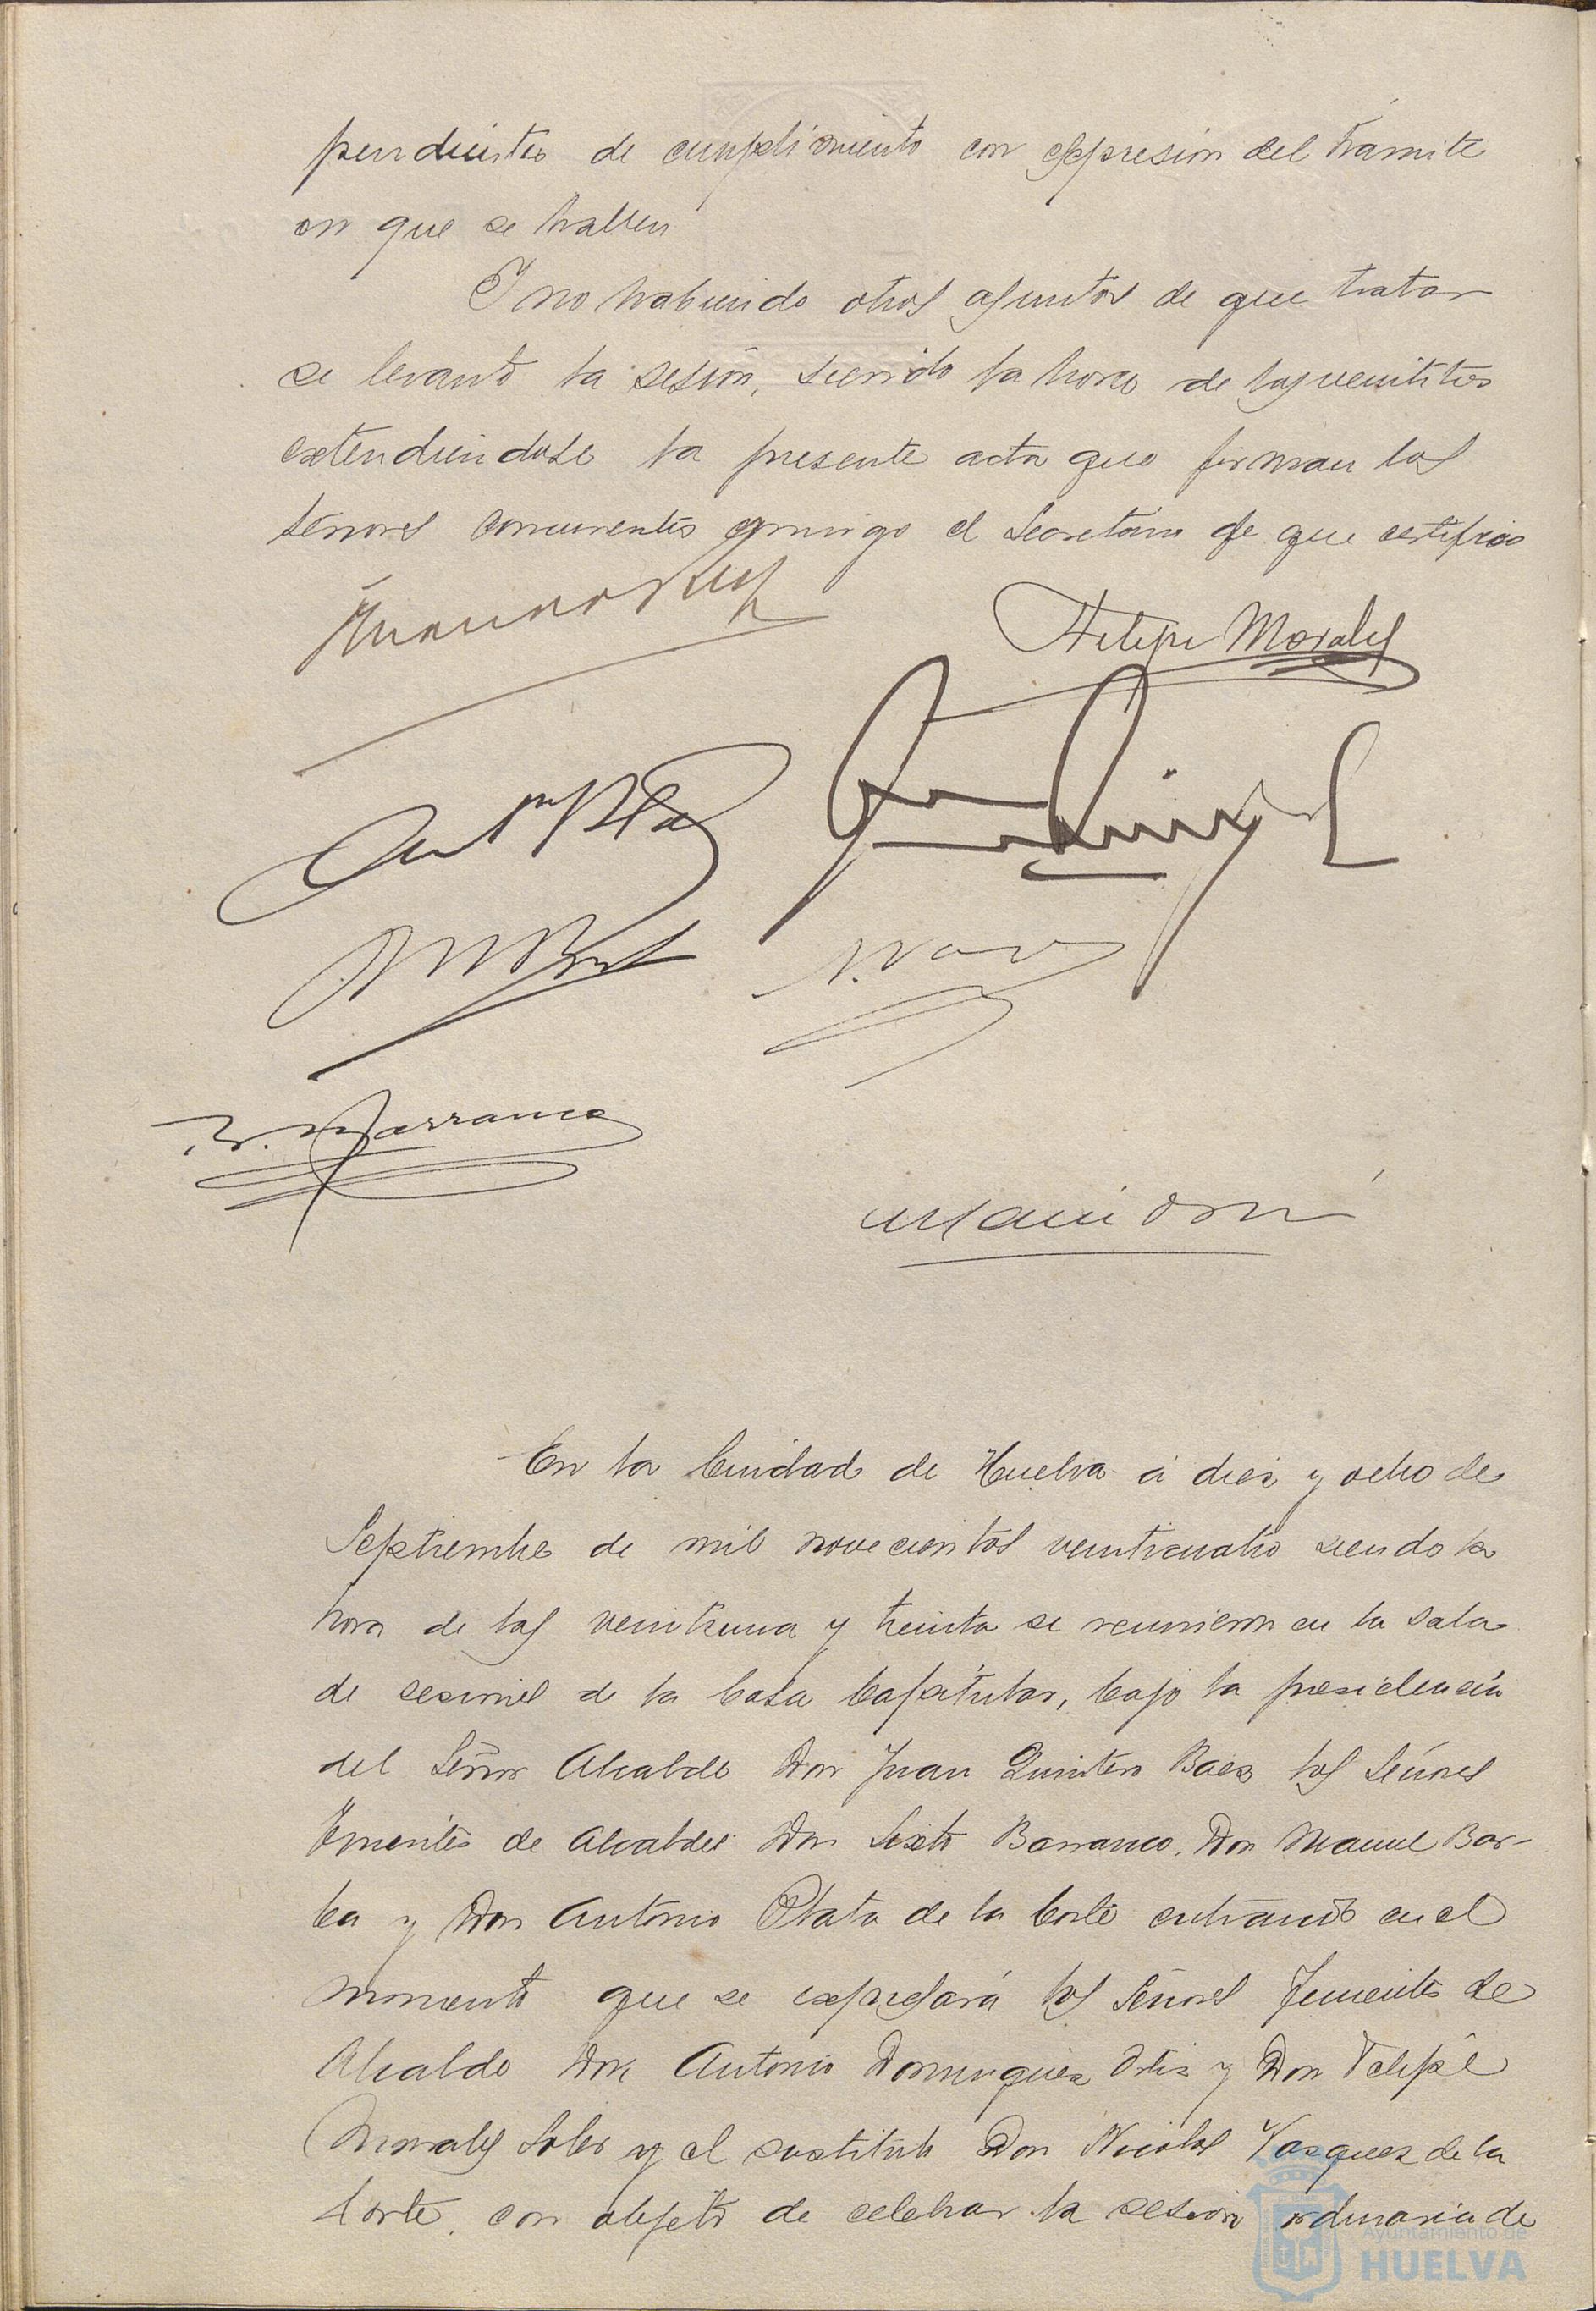 pendientes de cumplimiento con expresión del trámite
en que se hallen
Y no habiendo otros asuntos de que tratar
se levantó la sesión, siendo la hora de las veintitres
extendiendose la presente acta que firman los
señores concurrentes conmigo el Secretario de que certifico
Felipe Morales
Ant Plata
M Barba
N. Vazq
S. Barranco
En la Ciudad de Huelva á diez y ocho de
Septiembre de mil novecientos veinticuatro siendo la
hora de las veintiuna y treinta se reunieron en la sala
de sesiones de la Casa Capitular, bajo la presidencia
del Señor Alcalde Don Juan Quintero Baez los Señores
Tenientes de Alcaldes Don Sixto Barranco, Don Manuel Bar-
ba y Don Antonio Plata de la Corte entrando en el
momento que se expresará los Señores Tenientes de
Alcalde Don Antonio Dominguez Ortiz y Don Felipe
Morales Soler y el sustituto Don Nicolas Vazquez de la
Corte, con objeto de celebrar la sesion ordinaria de
Ayuntamiento de
HUELVA